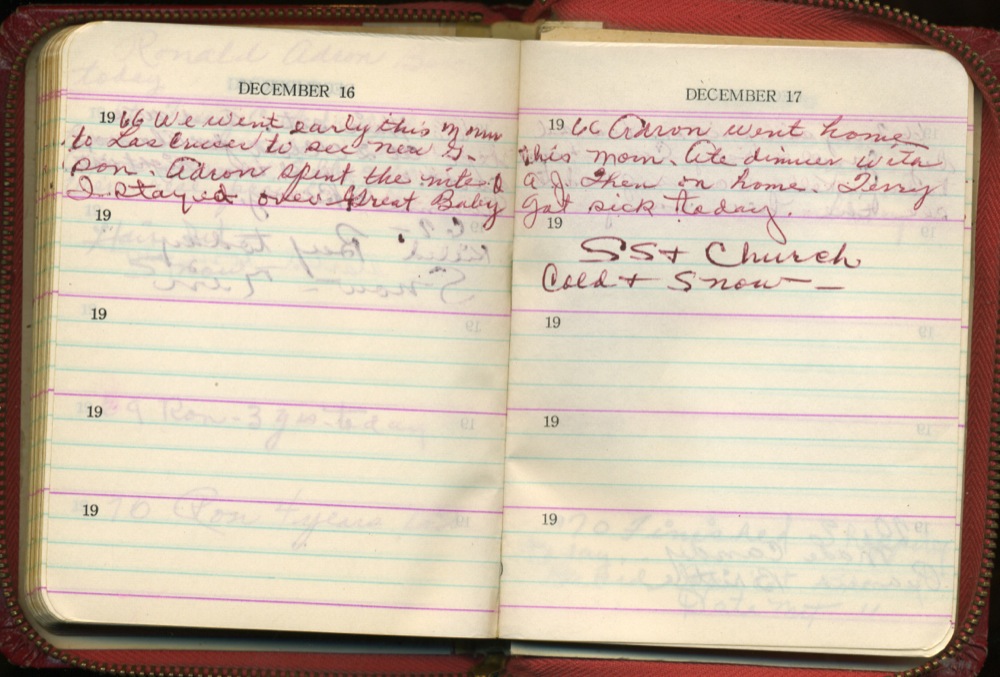 DECEMBER 16
1966 We went early this morn
to Las Cruces to see new G-
son. Adron spent the nite &
I stayed over. Great Baby
19
19
19
19
DECEMBER 17
1966 Adron went home
this morn. Ate dinner with
a J. then on home. Terry
got sick today.
19
SS + Church
Cold + Snow —
19
19
19